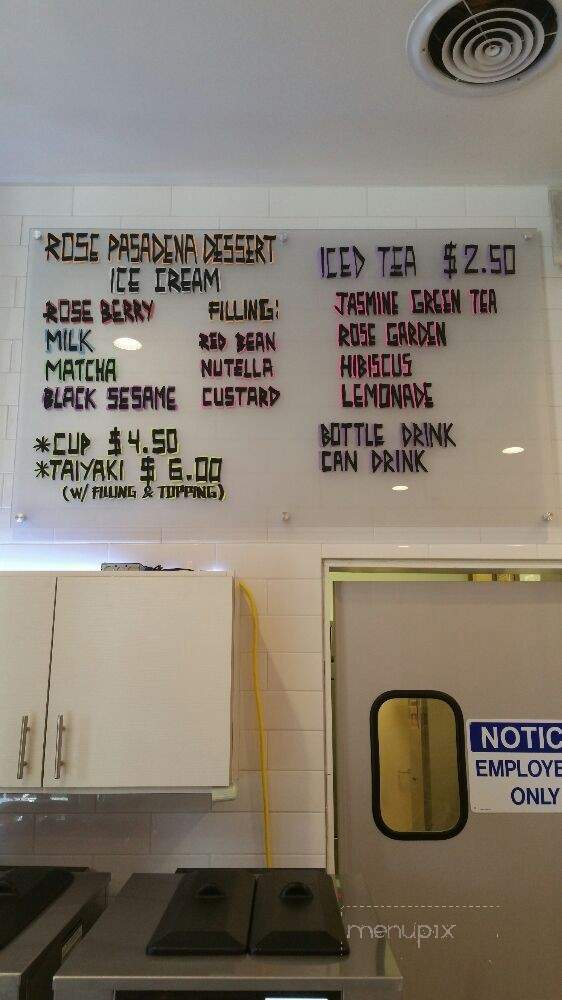 ROSE PASADENA DESSERT
ICE CREAM
ROSE BERRY
MILK
MATCHA
BLACK SESAME
FILLING:
RED BEAN
NUTELLA
CUSTARD
*CUP $4.50
*TAIYAKI $6.00
(W/ FILLING & TOPPING)
ICED TEA $2.50
JASMINE GREEN TEA
ROSE GARDEN
HIBISCUS
LEMONADE
BOTTLE DRINK
CAN DRINK
NOTIC
EMPLOYE
ONLY
menupix